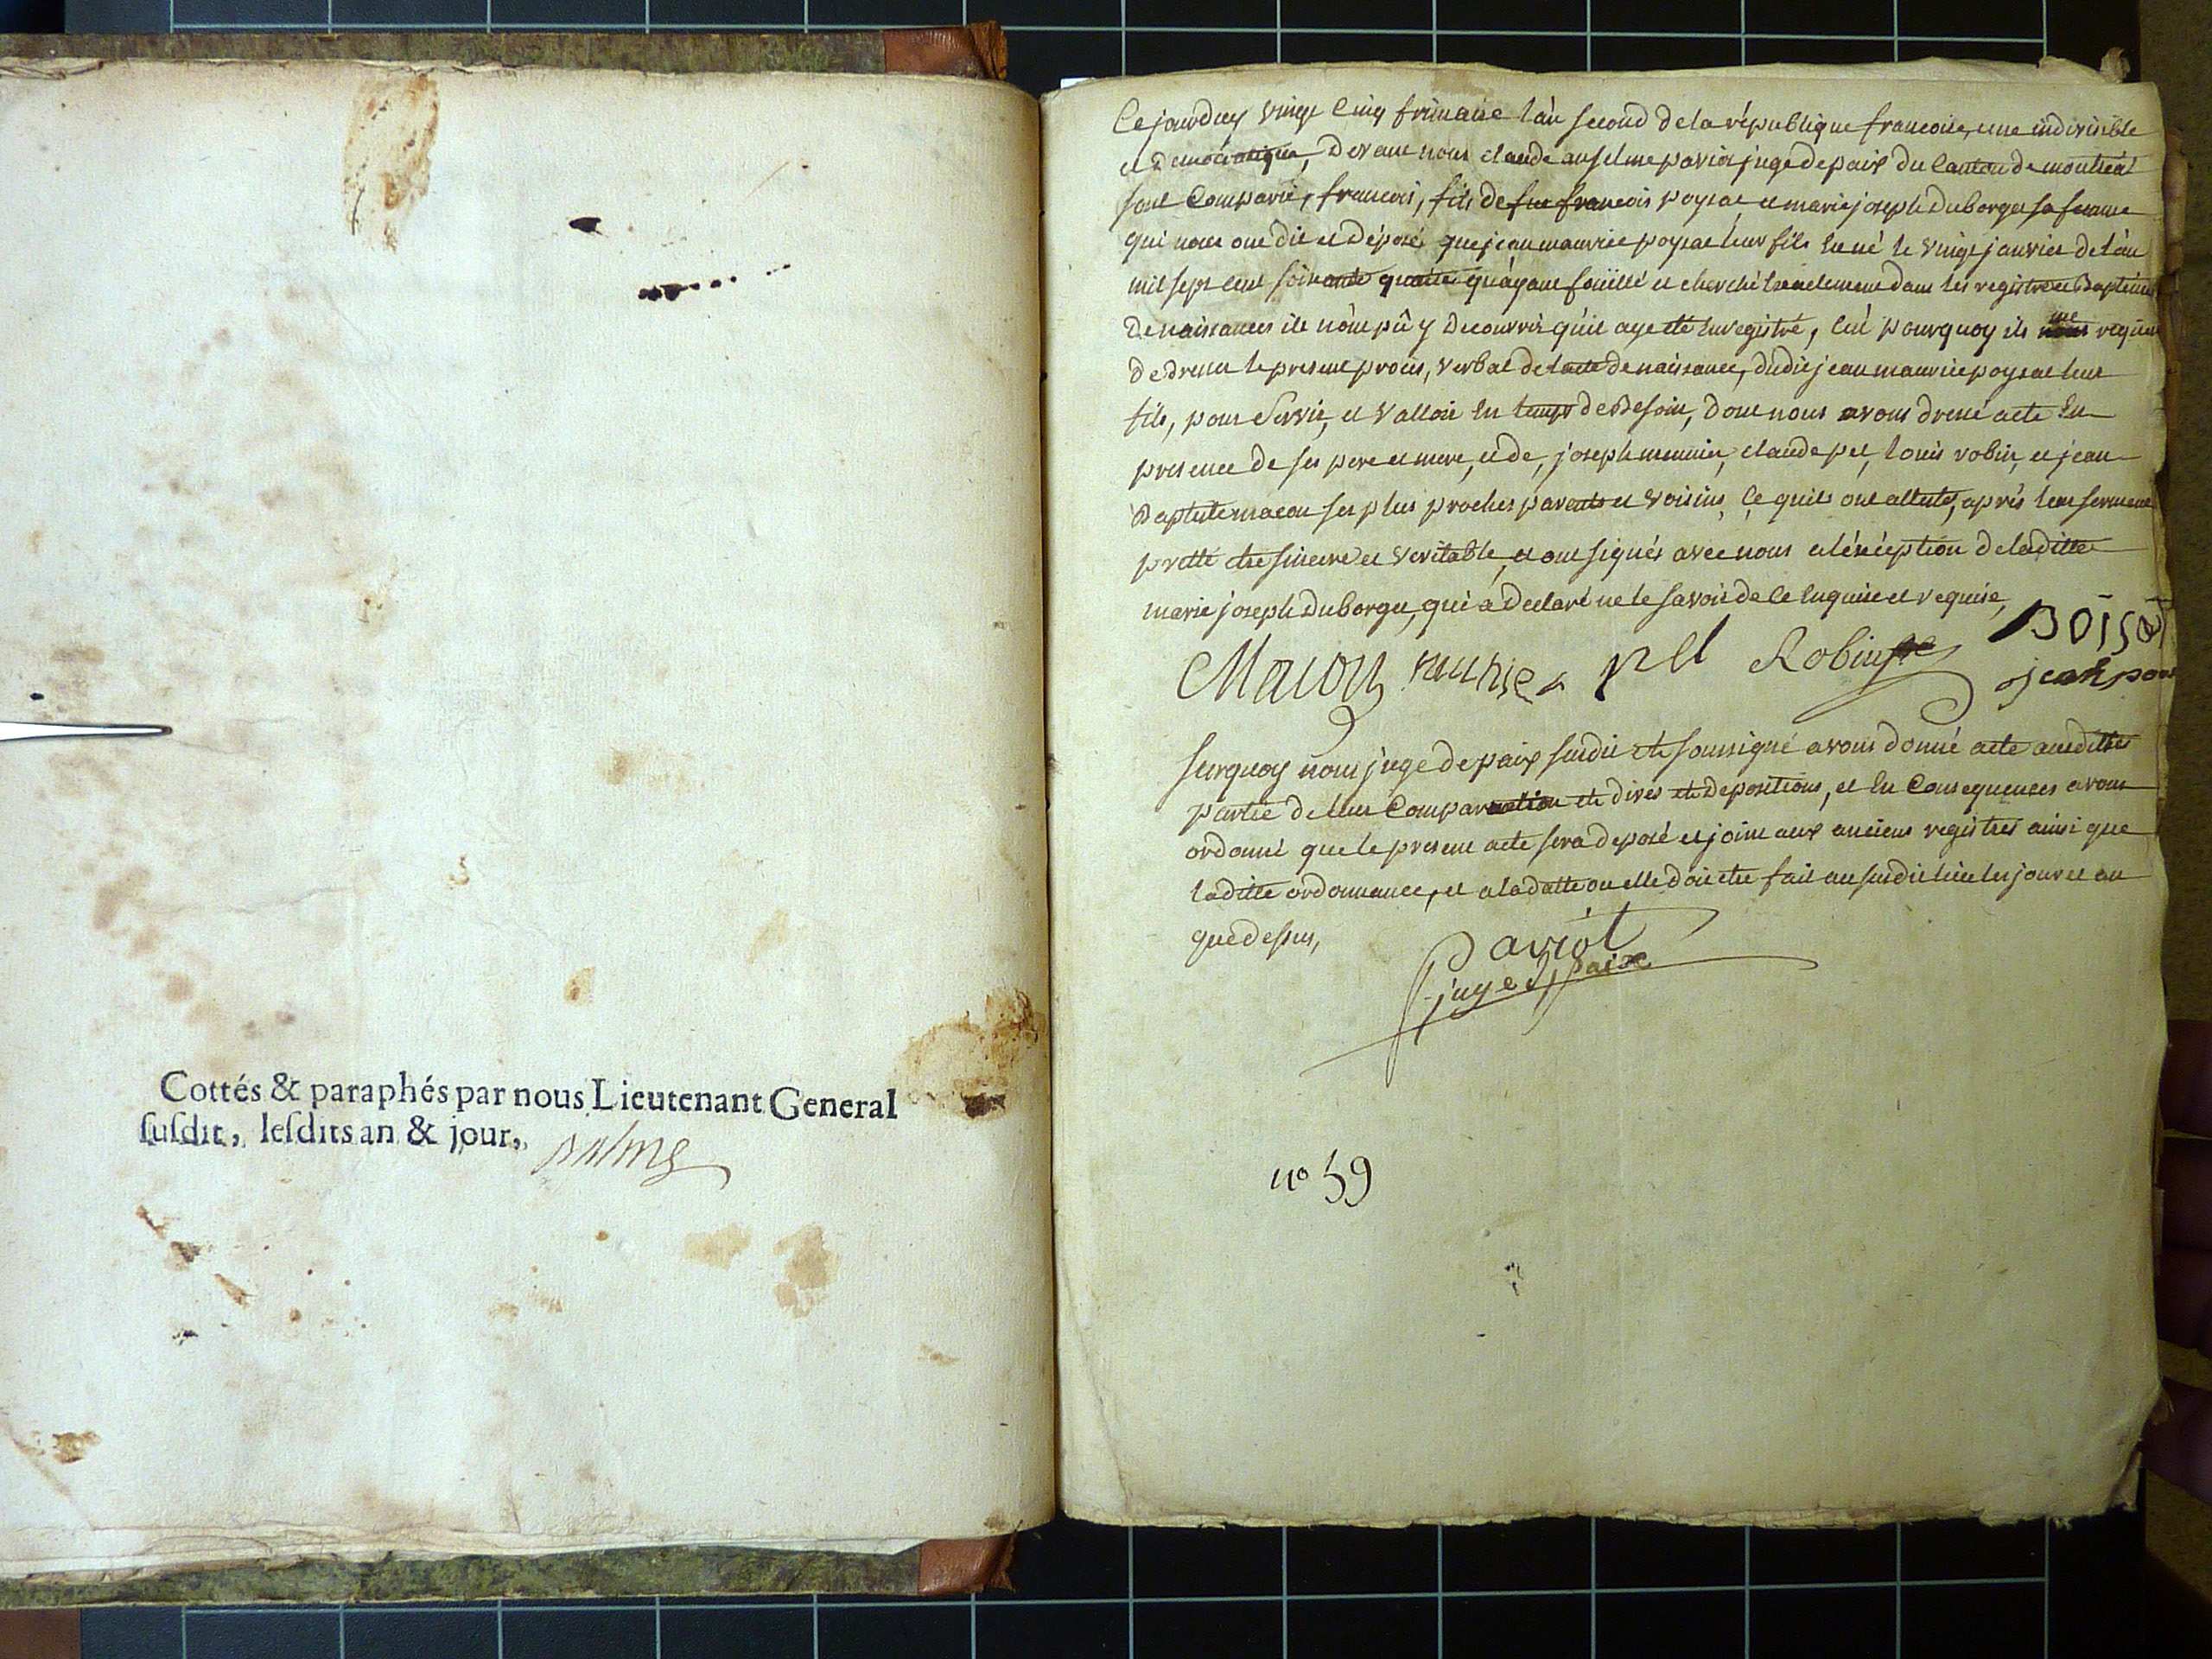 Cottés & paraphés par nous Lieutenant General
susdit, lesdits an & jour,
Cejourduy vingt cinq frimaire l'an second de la république francoise, une indivisible
et democratique, devant nous claude anselme paviot juge de paix du Canton de montréal
sont Comparu, francois, fils de feu francois poysat et marie joseph duborget sa femme
qui nous ont dit et déposé que jean maurice poysat leur fils est né le vingt janvier de l'an
mil sept cent soixante quatre qu'ayant foüillé et cherché exactement dans les registres de Baptemes
de naissances ils n'ont pû y decouvrir qu'il aye eté enregistré, c'est pourquoy ils me
de dresser le present procès, verbal de l'acte de naissance, dudit jean maurice poysat leur
fils, pour servir, et valloir en temps de Besoin, dont nous avons dressé acte en
presence de ses pere et mere, et de, joseph munier, claude pet, louis robin, et jean
Baptiste macon ses plus proches parents et voisins, ce quils ont attesté, après leur serment
pretté etre sincere et veritable, et ont signés avec nous a l'éxception de laditte
marie joseph duborget, qui a declaré ne le savoir de ce enquise et requise,
Macon munier pet Robin
jean
surquoy nous juge de paix susdit et soussigné avons donné acte ausdittes
partie de leur Comparution et dires et depositions, et en Consequences avons
ordonné que le present acte sera deposé et joint aux anciens registres ainsi que
laditte ordonnance, et a la datte ou elle doit etre fait au susdit lieu les jour et an
que dessus,
Paviot
juge d paix
n° 59